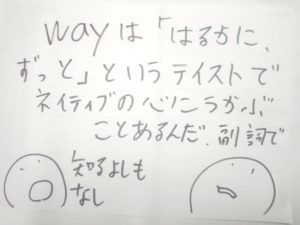 wayは「はるかに、
ずっと」というテイストで
ネイティブの心にうかぶ
ことあるんだ.副詞で
知るよしも
なし